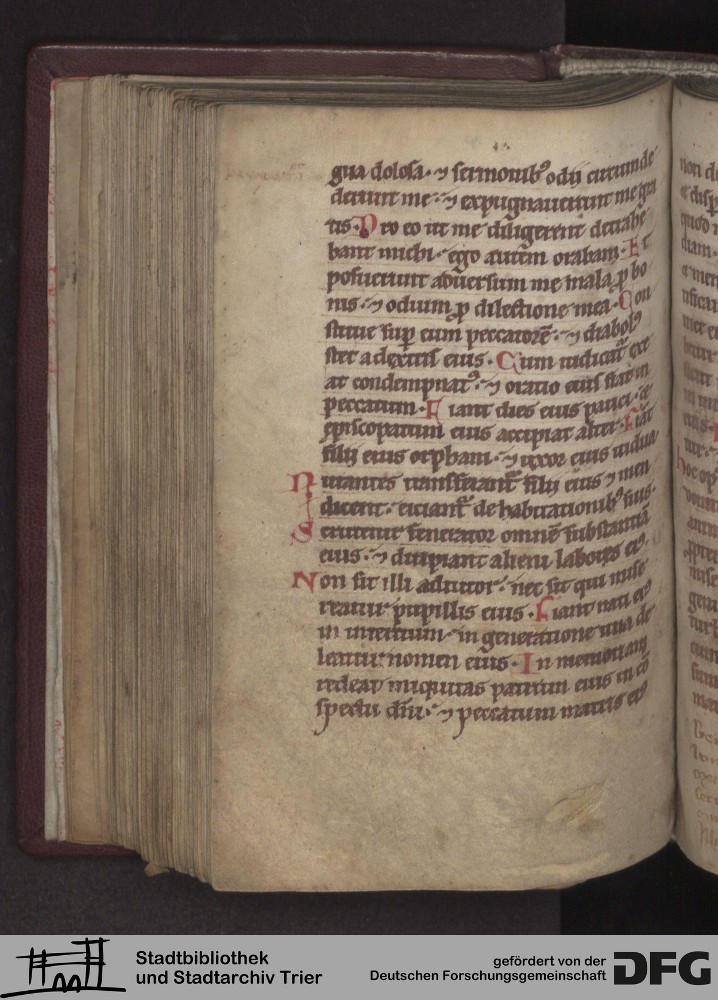 gua dolosa. ⁊ sermonibꝰ odii circunde
derunt me. ⁊ expugnauerunt me gra
tis. Pro eo ut me diligerent detrahe
bant michi. ego autem orabam. Et
posuerunt aduersum me mala ꝓ bo
nis. ⁊ odium ꝓ dilectione mea. Con
stitue suꝑ eum peccatorē. ⁊ diabolꝰ
stet a dextris eius. Cum iudicat̃ exe
at condempnatꝰ. ⁊ oratio eius fiat in
peccatum. Fiant dies eius pauci. ⁊
episcopatum eius accipiat alter. Fiāt
filii eius orphani. ⁊ uxor eius uidua
Nutantes transferant̃ filii eius ⁊ men
dicent. eiciant̃ de habitationibꝰ suis.
Scrutetur fenerator omnē substantiā
eius. ⁊ diripiant alieni labores eiꝰ.
Non sit illi adiutor. nec sit qui mise
reatur pupillis eius. Fiant nati eiꝰ
in interitum. in generatione una de
leatur nomen eius. In memoriam
redeat iniquitas patrum eius in cō
spectu dñi. ⁊ peccatum matris eiꝰ
Stadtbibliothek
und Stadtarchiv Trier
gefördert von der
Deutschen Forschungsgemeinschaft
DFG